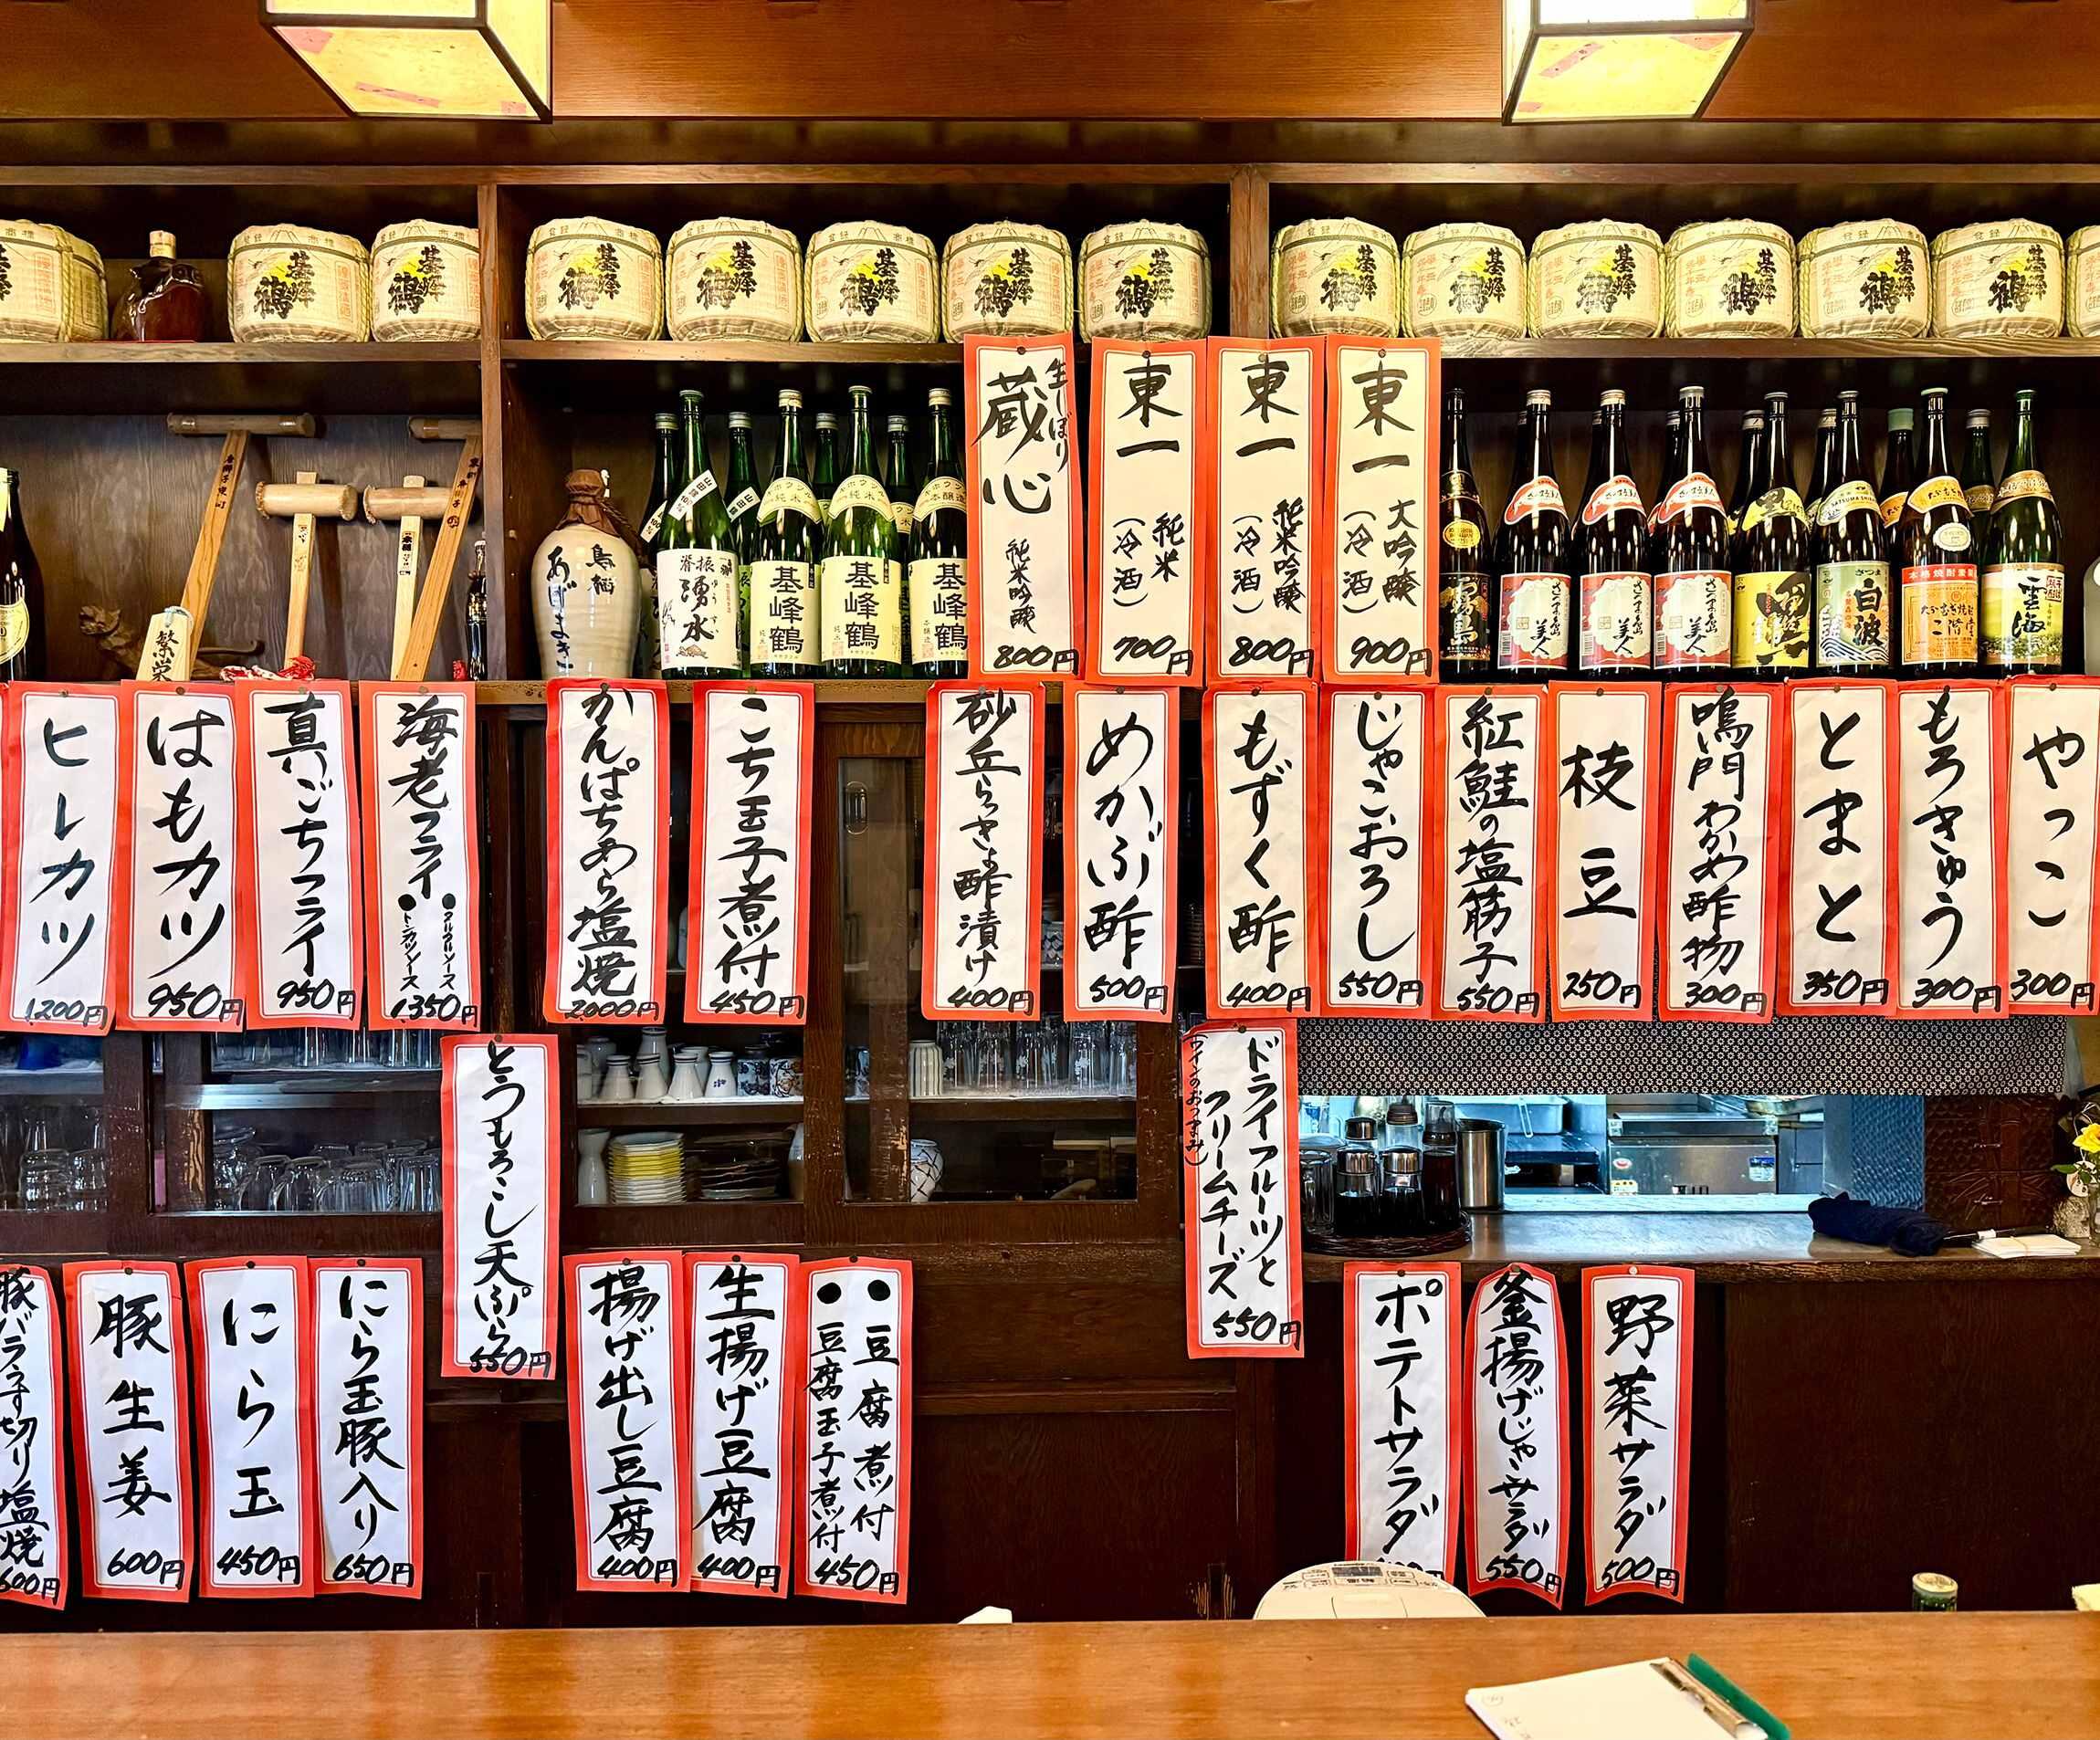 基峰鶴
基峰鶴
基峰鶴
基峰鶴
基峰鶴
基峰鶴
基峰鶴
基峰鶴
基峰鶴
基峰鶴
基峰鶴
基峰鶴
基峰鶴
繁栄
鳥栖
あげまき
山田錦
脊振湧水
純米
基峰鶴
純米
基峰鶴
本醸造
基峰鶴
生しぼり
蔵心
純米吟醸
800円
東一
純米
(冷酒)
700円
東一
純米吟醸
(冷酒)
800円
東一
大吟醸
(冷酒)
900円
さつま島美人
さつま島美人
さつま島美人
さつま
白波
本格焼酎
二階堂
雲海
ヒレカツ
1,200円
はもカツ
950円
真ごちフライ
950円
海老フライ
●タルタルソース
●トンカツソース
1,350円
かんぱちあら塩焼
2,000円
こち玉子煮付
450円
砂丘らっきょ酢漬け
400円
めかぶ酢
500円
もずく酢
400円
じゃこおろし
550円
紅鮭の塩筋子
550円
枝豆
250円
鳴門わかめ酢物
300円
とまと
350円
もろきゅう
300円
やっこ
300円
とうもろこし天ぷら
550円
ドライフルーツと
クリームチーズ
(ワインのおつまみ)
550円
豚バラねぎ切り塩焼
600円
豚生姜
600円
にら玉
450円
にら玉豚入り
650円
揚げ出し豆腐
400円
生揚げ豆腐
400円
●豆腐煮付
●豆腐玉子煮付
450円
ポテトサラダ
釜揚げじゃこサラダ
550円
野菜サラダ
500円